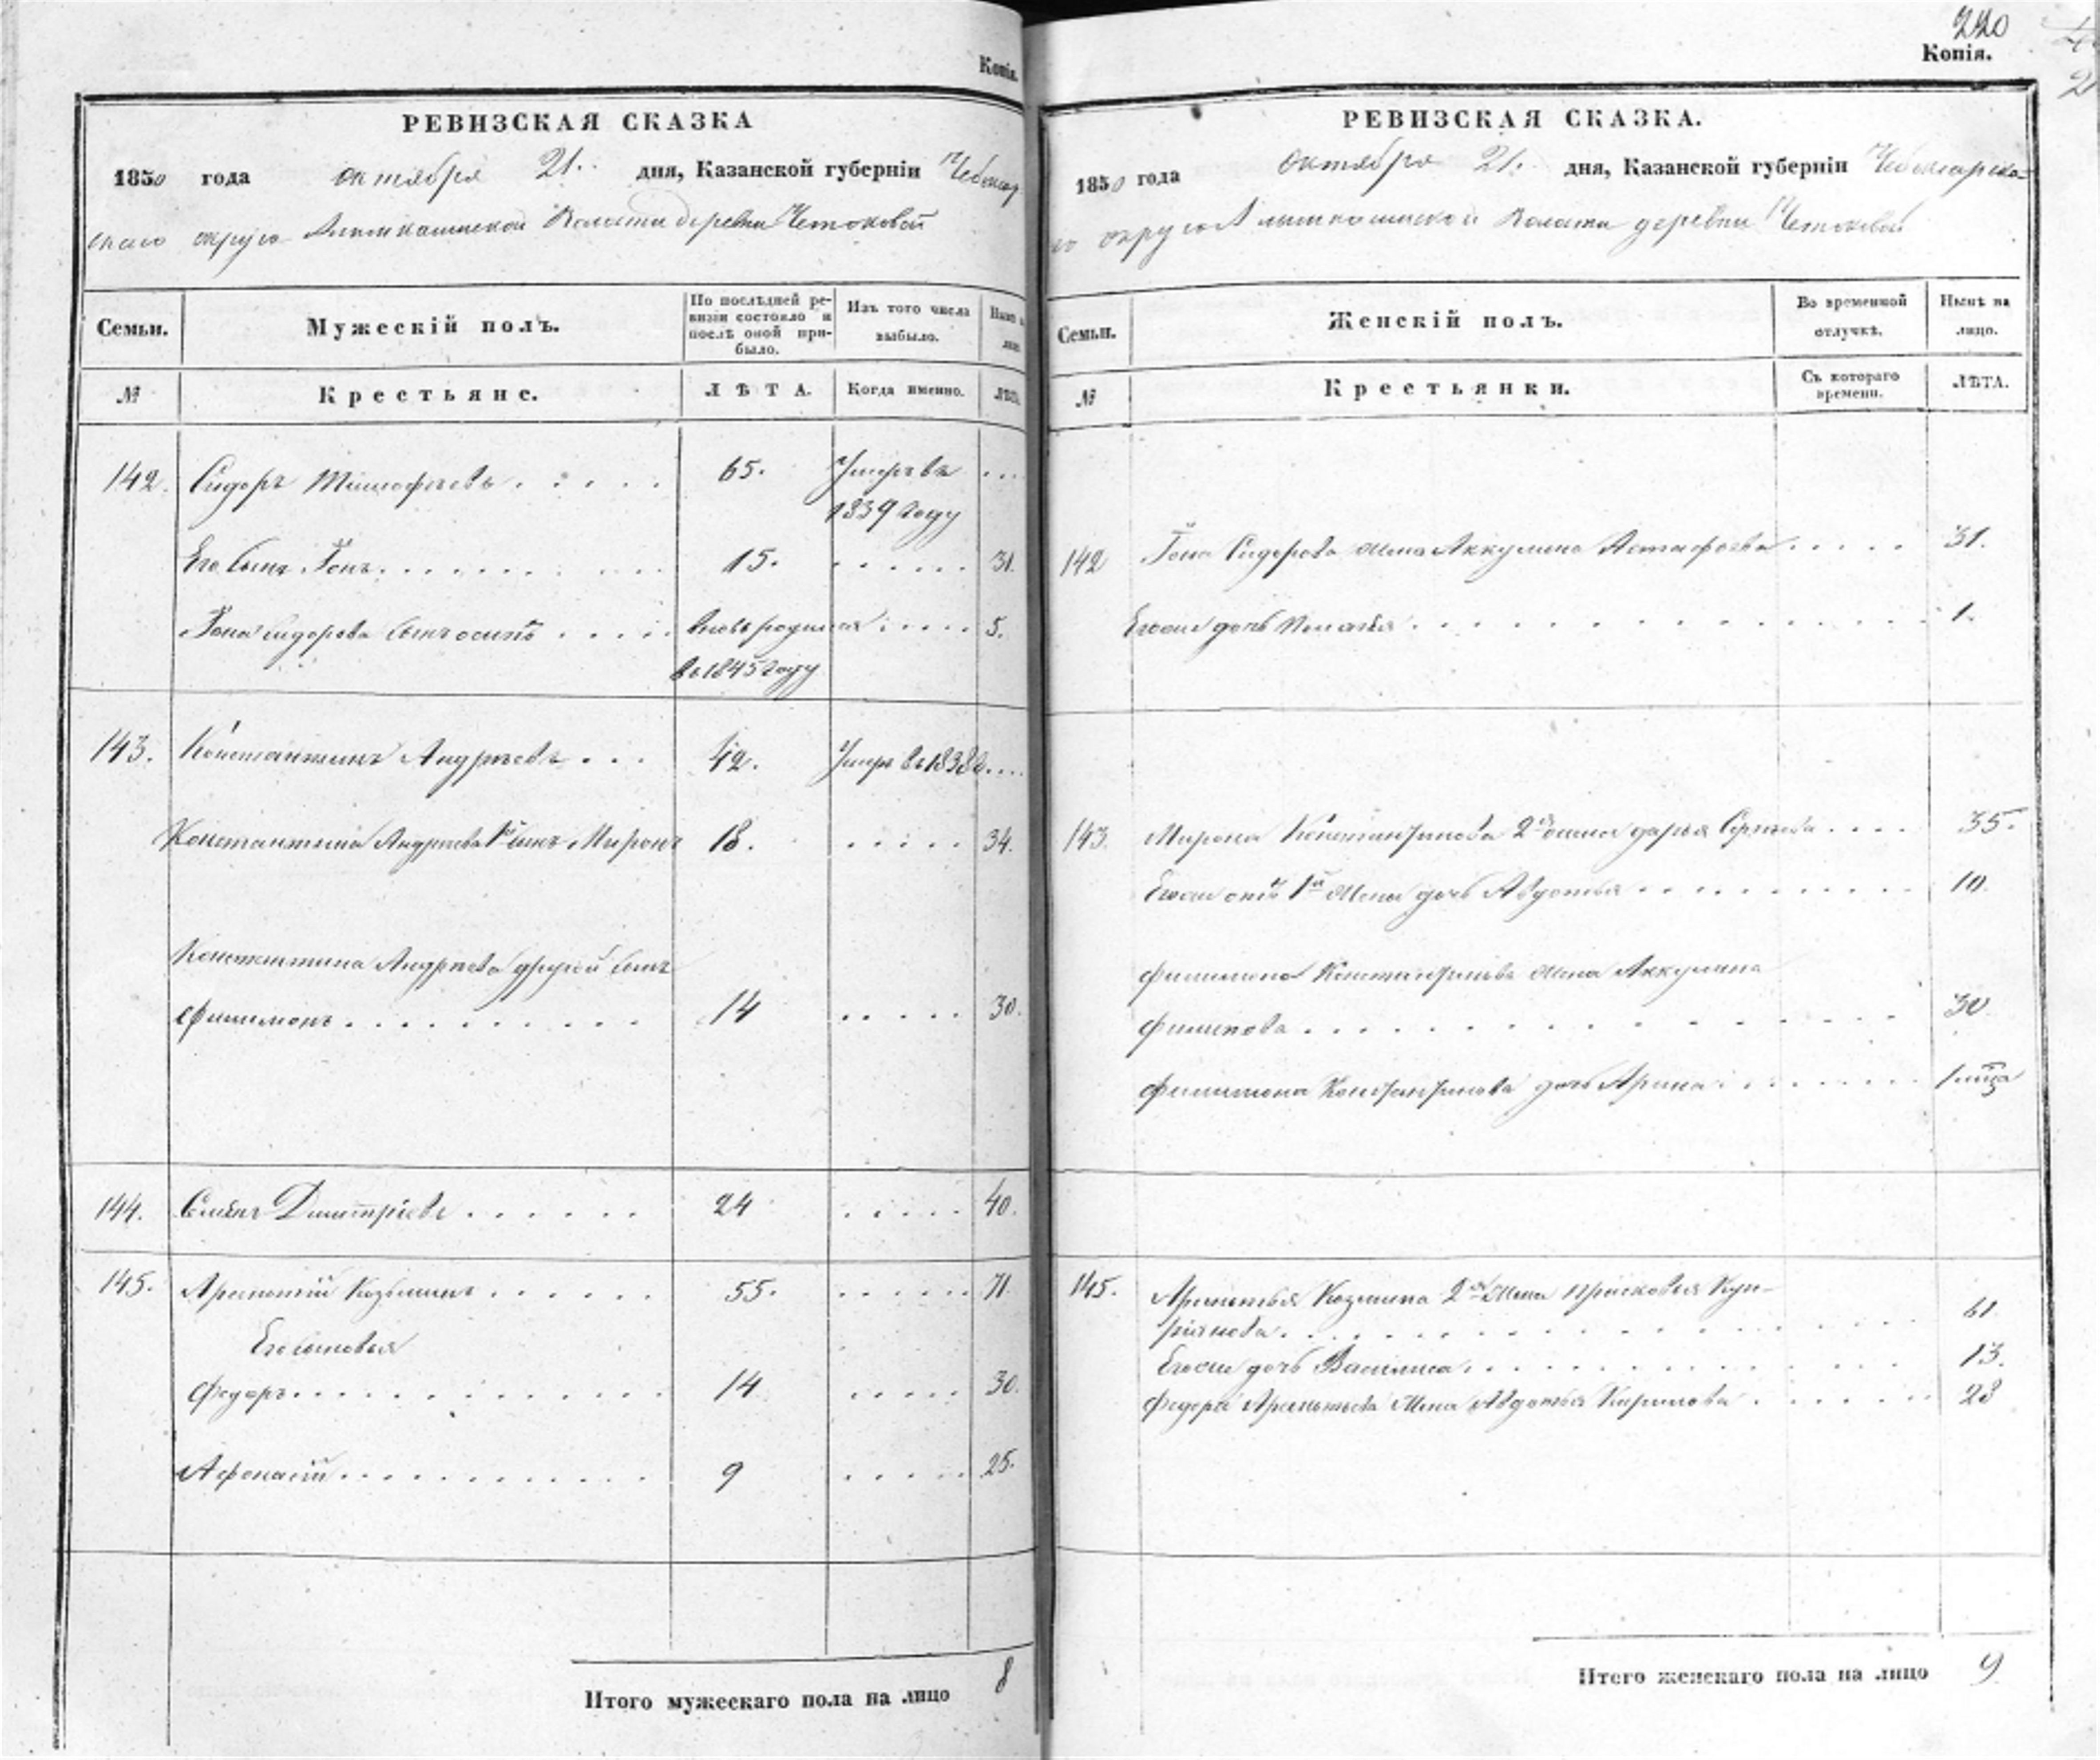 Копія.
РЕВИЗСКАЯ СКАЗКА
1850 года октября 21. дня, Казанской губерніи Чебоксар
скаго округа Волости деревни Четоковой
Семьи.
Мужескій полъ.
По послѣдней ре-
визіи состояло и
послѣ оной при-
было.
Изъ того числа
выбыло.
№
Крестьяне.
ЛѢТА.
Когда именно.
142. Сидоръ Тимофѣевъ . . . . . 65. Умеръ въ ...
1839 году
Его сынъ Іонъ . . . . . . 15. . . . . . . 31.
Іона Сидорова сынъ осипъ . . . . . вновь родился . . . . 5.
въ 1845 году
143. Константинъ Андреевъ . . . 42. Умеръ въ 1838 ....
Константина Андреева 1й сынъ Миронъ 18. . . . . . 34.
Константина Андреева другой сынъ
Филимонъ . . . . . . . . . . 14 . . . . . 30.
144. Димитріевъ . . . . . . 24 . . . . . 40.
145. Арсентій Козьминъ . . . . . . 55. . . . . . . 71.
Его сыновья
Федоръ . . . . . . . . . . . . 14 . . . . . 30.
Афонасій . . . . . . . . . . . 9 . . . . . 25.
Итого мужескаго пола на лицо 8
220
Копія.
РЕВИЗСКАЯ СКАЗКА.
1850 года Октября 21. дня, Казанской губерніи Чебоксарска-
го округа Волости деревни Четоковой
Семьи.
Женскій полъ.
Во временной
отлучкѣ.
Нынѣ на
лицо.
№
Крестьянки.
Съ котораго
времени.
ЛѢТА.
142 Іона Сидорова жена Аккулина Астафьева . . . . . 31.
Егоже дочь . . . . . . . . . . . . . 1.
143. Мирона Константинова 2я жена дарья Сергеева . . . . 35.
Егоже отъ 1й жены дочь Авдотья . . . . . . . . . . 10.
Филимона Константинова жена Аккулина
Филипова . . . . . . . . . . . . . . 30
Филимона Константинова дочь Арина . . . . . . . .
145. Арсентья Козмина 2я жена Прасковья Куп-
ріянова . . . . . . . . . . . . . . 61
Егоже дочь Василиса . . . . . . . . . . . 13.
Федора Арсентьева жена Авдотья Кирилова . . . . . . 28
Итого женскаго пола на лицо 9